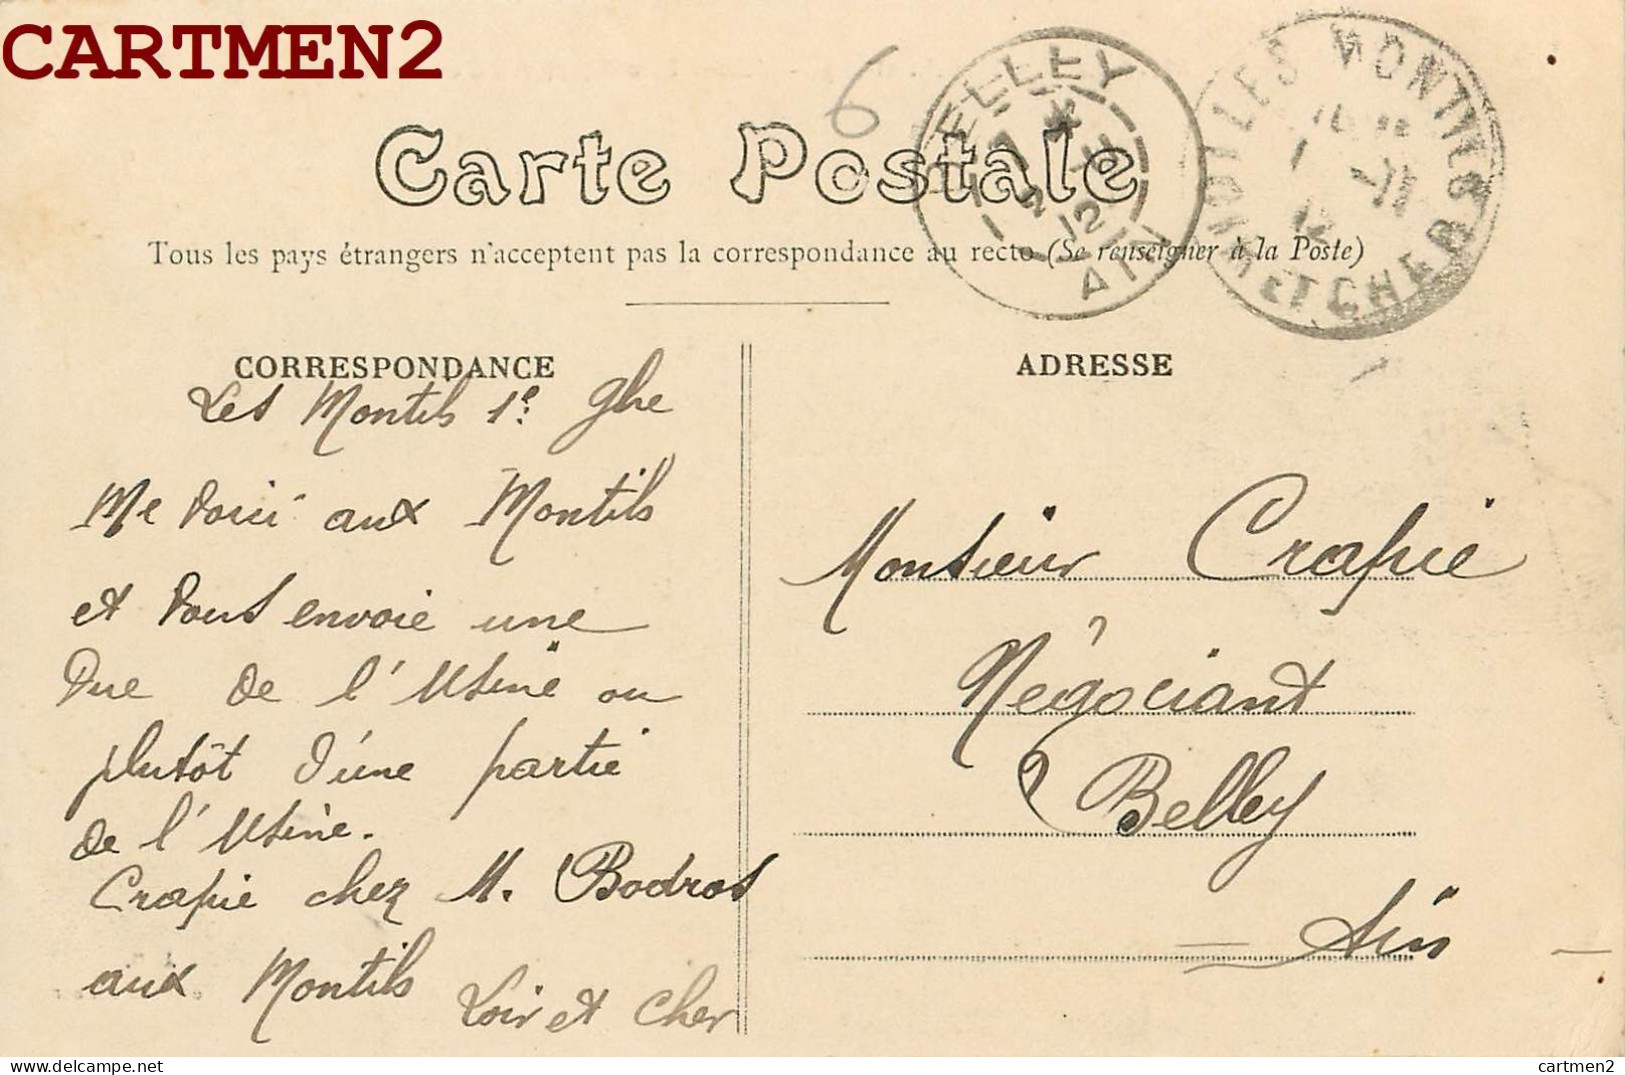 CARTMEN2
6
BELLEY
7 *
1 2 - 11
12
AIN
LES MONTILS
1 - 11
12
LOIR ET CHER
Carte Postale
Tous les pays étrangers n'acceptent pas la correspondance au recto (Se renseigner à la Poste)
CORRESPONDANCE
ADRESSE
Les Montils 1e 9bre
Me voici aux Montils
et vous envoie une
vue de l'Usine ou
plutôt d'une partie
de l'Usine.
Crapie chez M. Bodros
aux Montils
Loir et Cher
Monsieur Crapie
Négociant
Belley
Ain
cartmen2